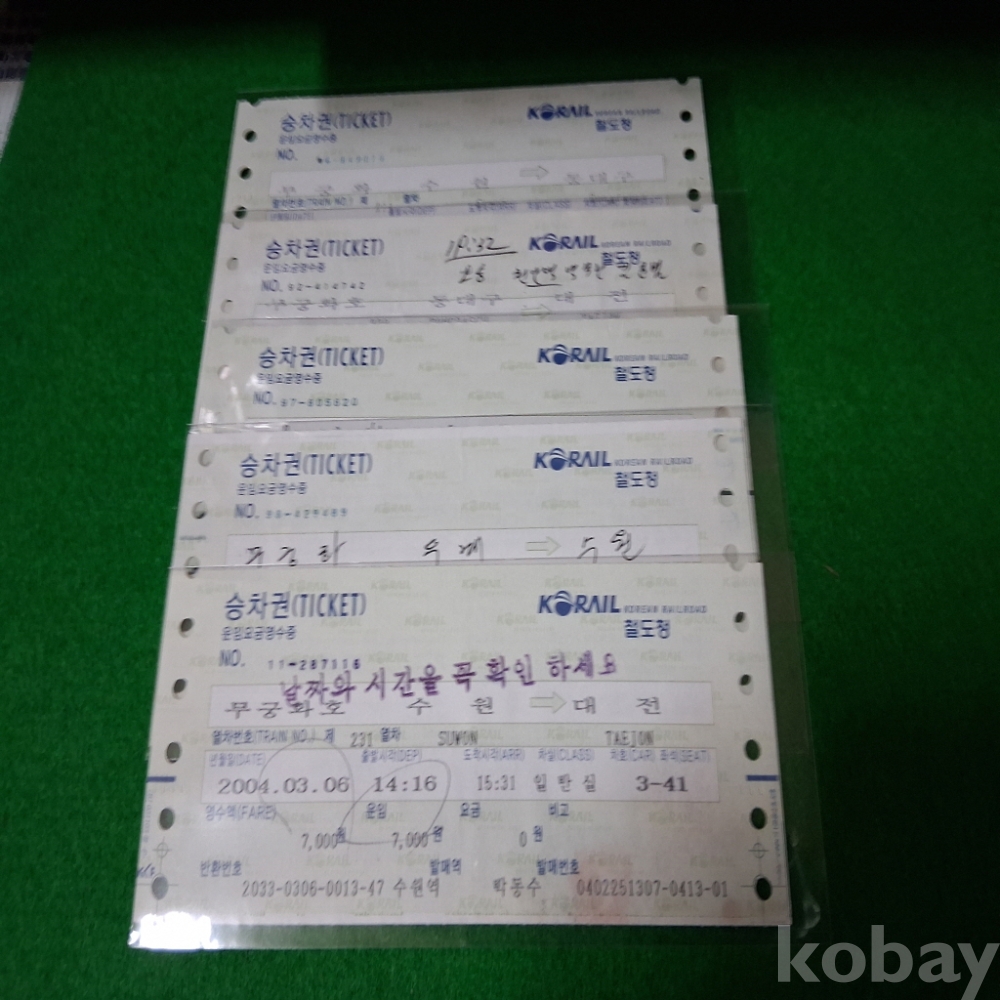 승차권(TICKET)
KORAIL KOREAN RAILROAD
운임요금영수증
철도청
NO.
무궁화 수원 ⇨ 동대구
열차번호(TRAIN NO.) 제 열차
승차권(TICKET)
19:32
KORAIL KOREAN RAILROAD
운임요금영수증
철도청
NO. 62-414742
무궁화호 동대구 ⇨ 대전
승차권(TICKET)
KORAIL KOREAN RAILROAD
운임요금영수증
철도청
NO. 67-605620
승차권(TICKET)
KORAIL KOREAN RAILROAD
운임요금영수증
철도청
NO.
무궁화 ⇨ 수원
승차권(TICKET)
KORAIL KOREAN RAILROAD
운임요금영수증
철도청
NO. 11-287116
날짜와 시간을 꼭 확인 하세요
무궁화호 수원 ⇨ 대전
열차번호(TRAIN NO.) 제 231 열차 SUWON TAEJON
년월일(DATE) 출발시각(DEP) 도착시각(ARR) 차실(CLASS) 차호(CAR) 좌석(SEAT)
2004.03.06 14:16 15:31 일반실 3-41
영수액(FARE) 운임 요금 비고
7,000원 7,000원 0원
반환번호 발매역 발매번호
2033-0306-0013-47 수원역 박동수 0402251307-0413-01
kobay